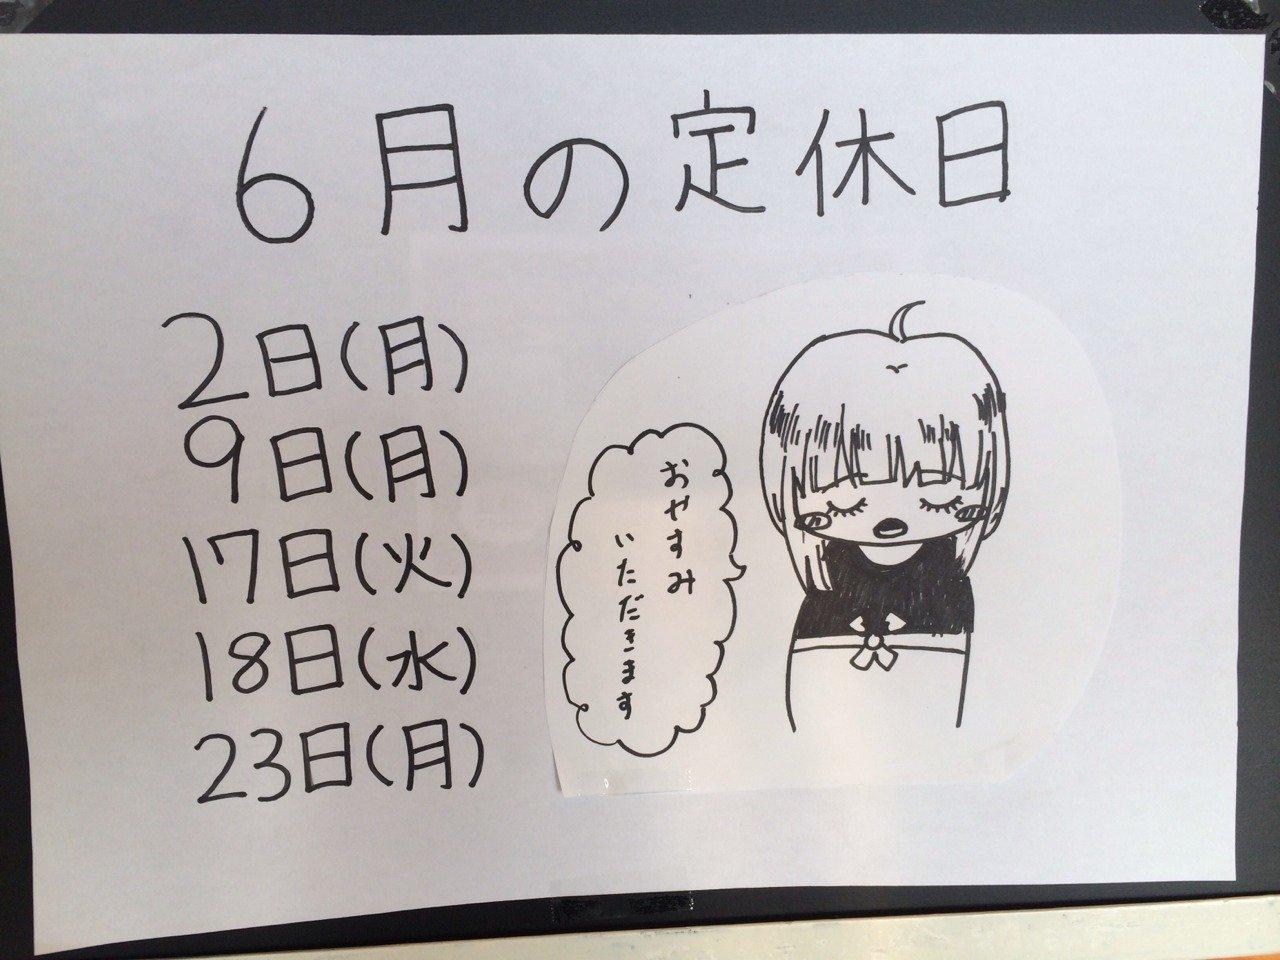 6月の定休日
2日(月)
9日(月)
17日(火)
18日(水)
23日(月)
おやすみ
いただきます